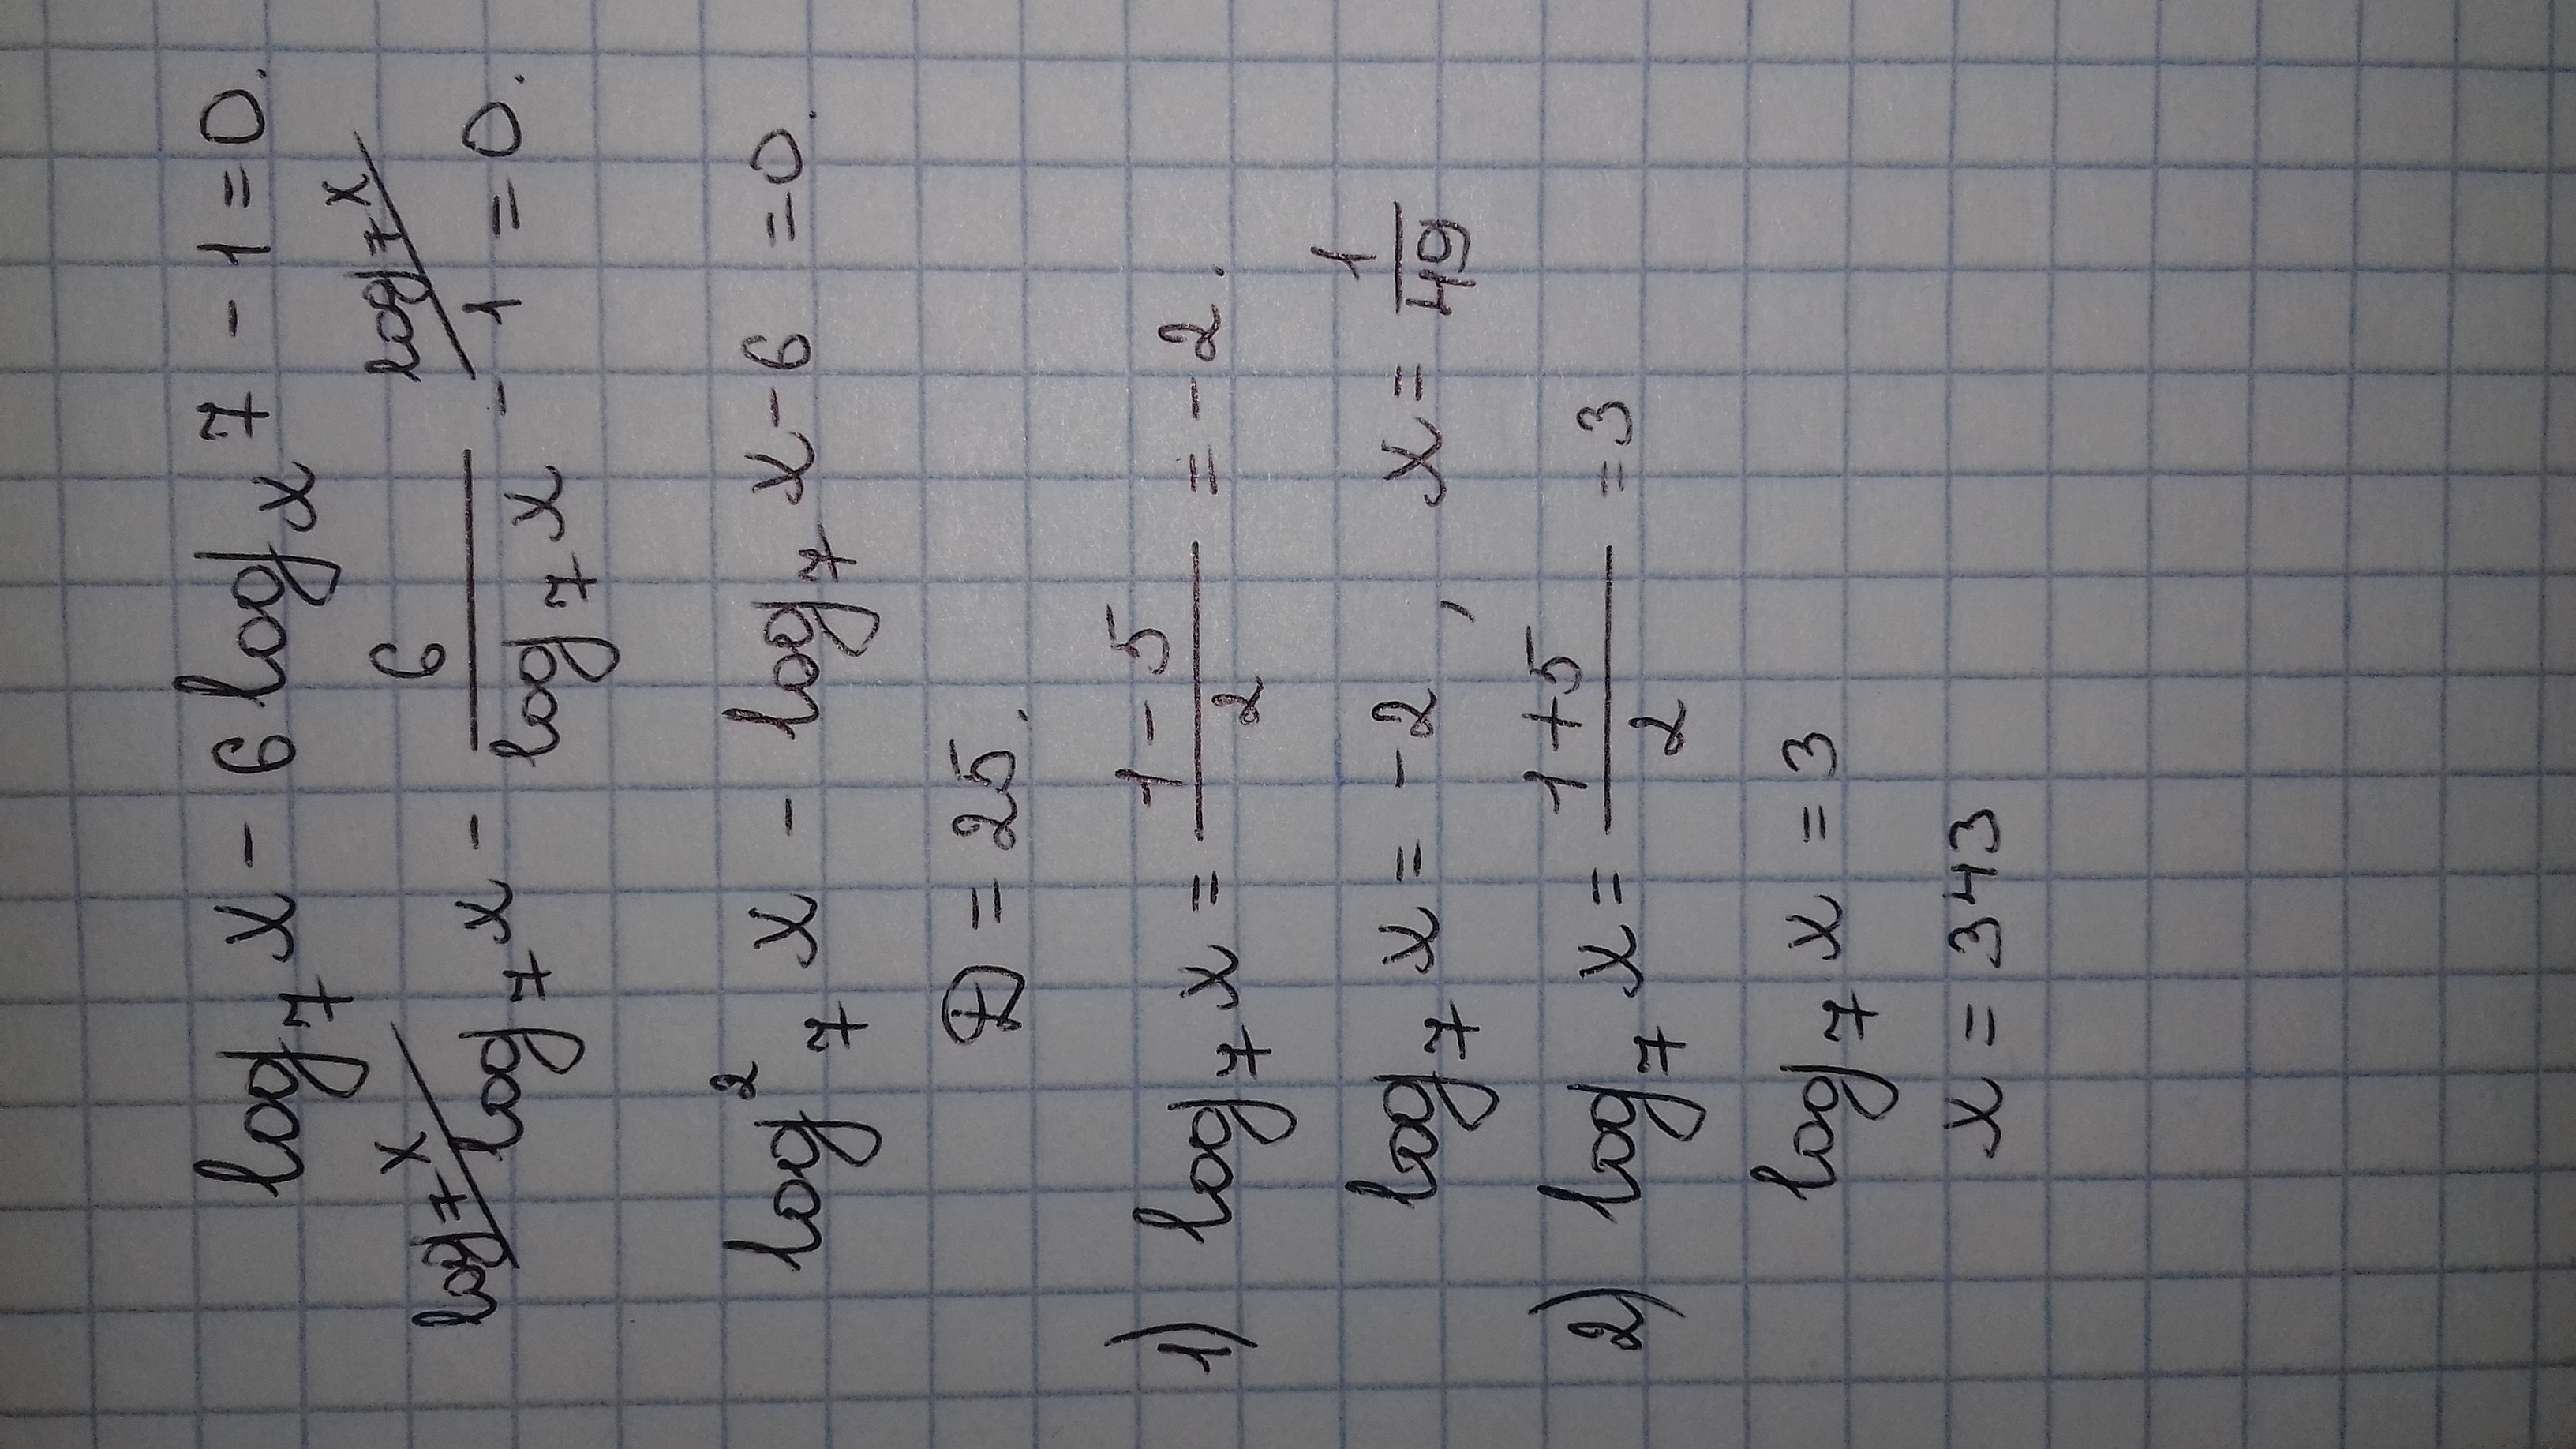 log₇ x - 6 logₓ 7 - 1 = 0.
log₇ x / log₇ x - 6 / log₇ x - log₇ x / 1 = 0.
log²₇ x - log₇ x - 6 = 0.
D = 25.
1) log₇ x = (1 - 5) / 2 = -2.
log₇ x = -2, x = 1/49
2) log₇ x = (1 + 5) / 2 = 3
log₇ x = 3
x = 343